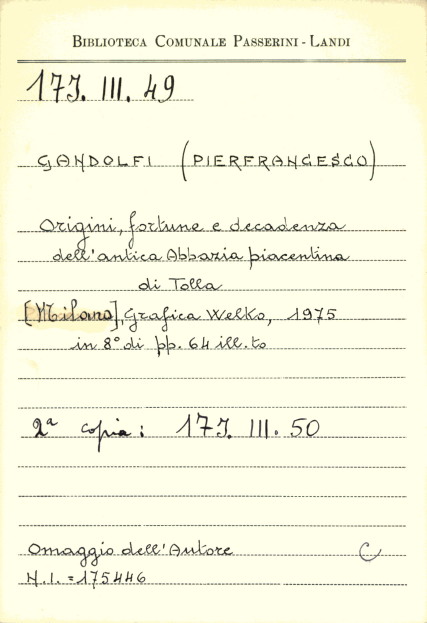 BIBLIOTECA COMUNALE PASSERINI - LANDI
17J. III. 49
GANDOLFI (PIERFRANCESCO)
Origini, fortune e decadenza
dell'antica Abbazia piacentina
di Tolla
[Milano], Grafica Welko, 1975
in 8° di pp. 64 ill.to
2ª copia: 17J. III. 50
Omaggio dell'Autore C
N.I. = 175446